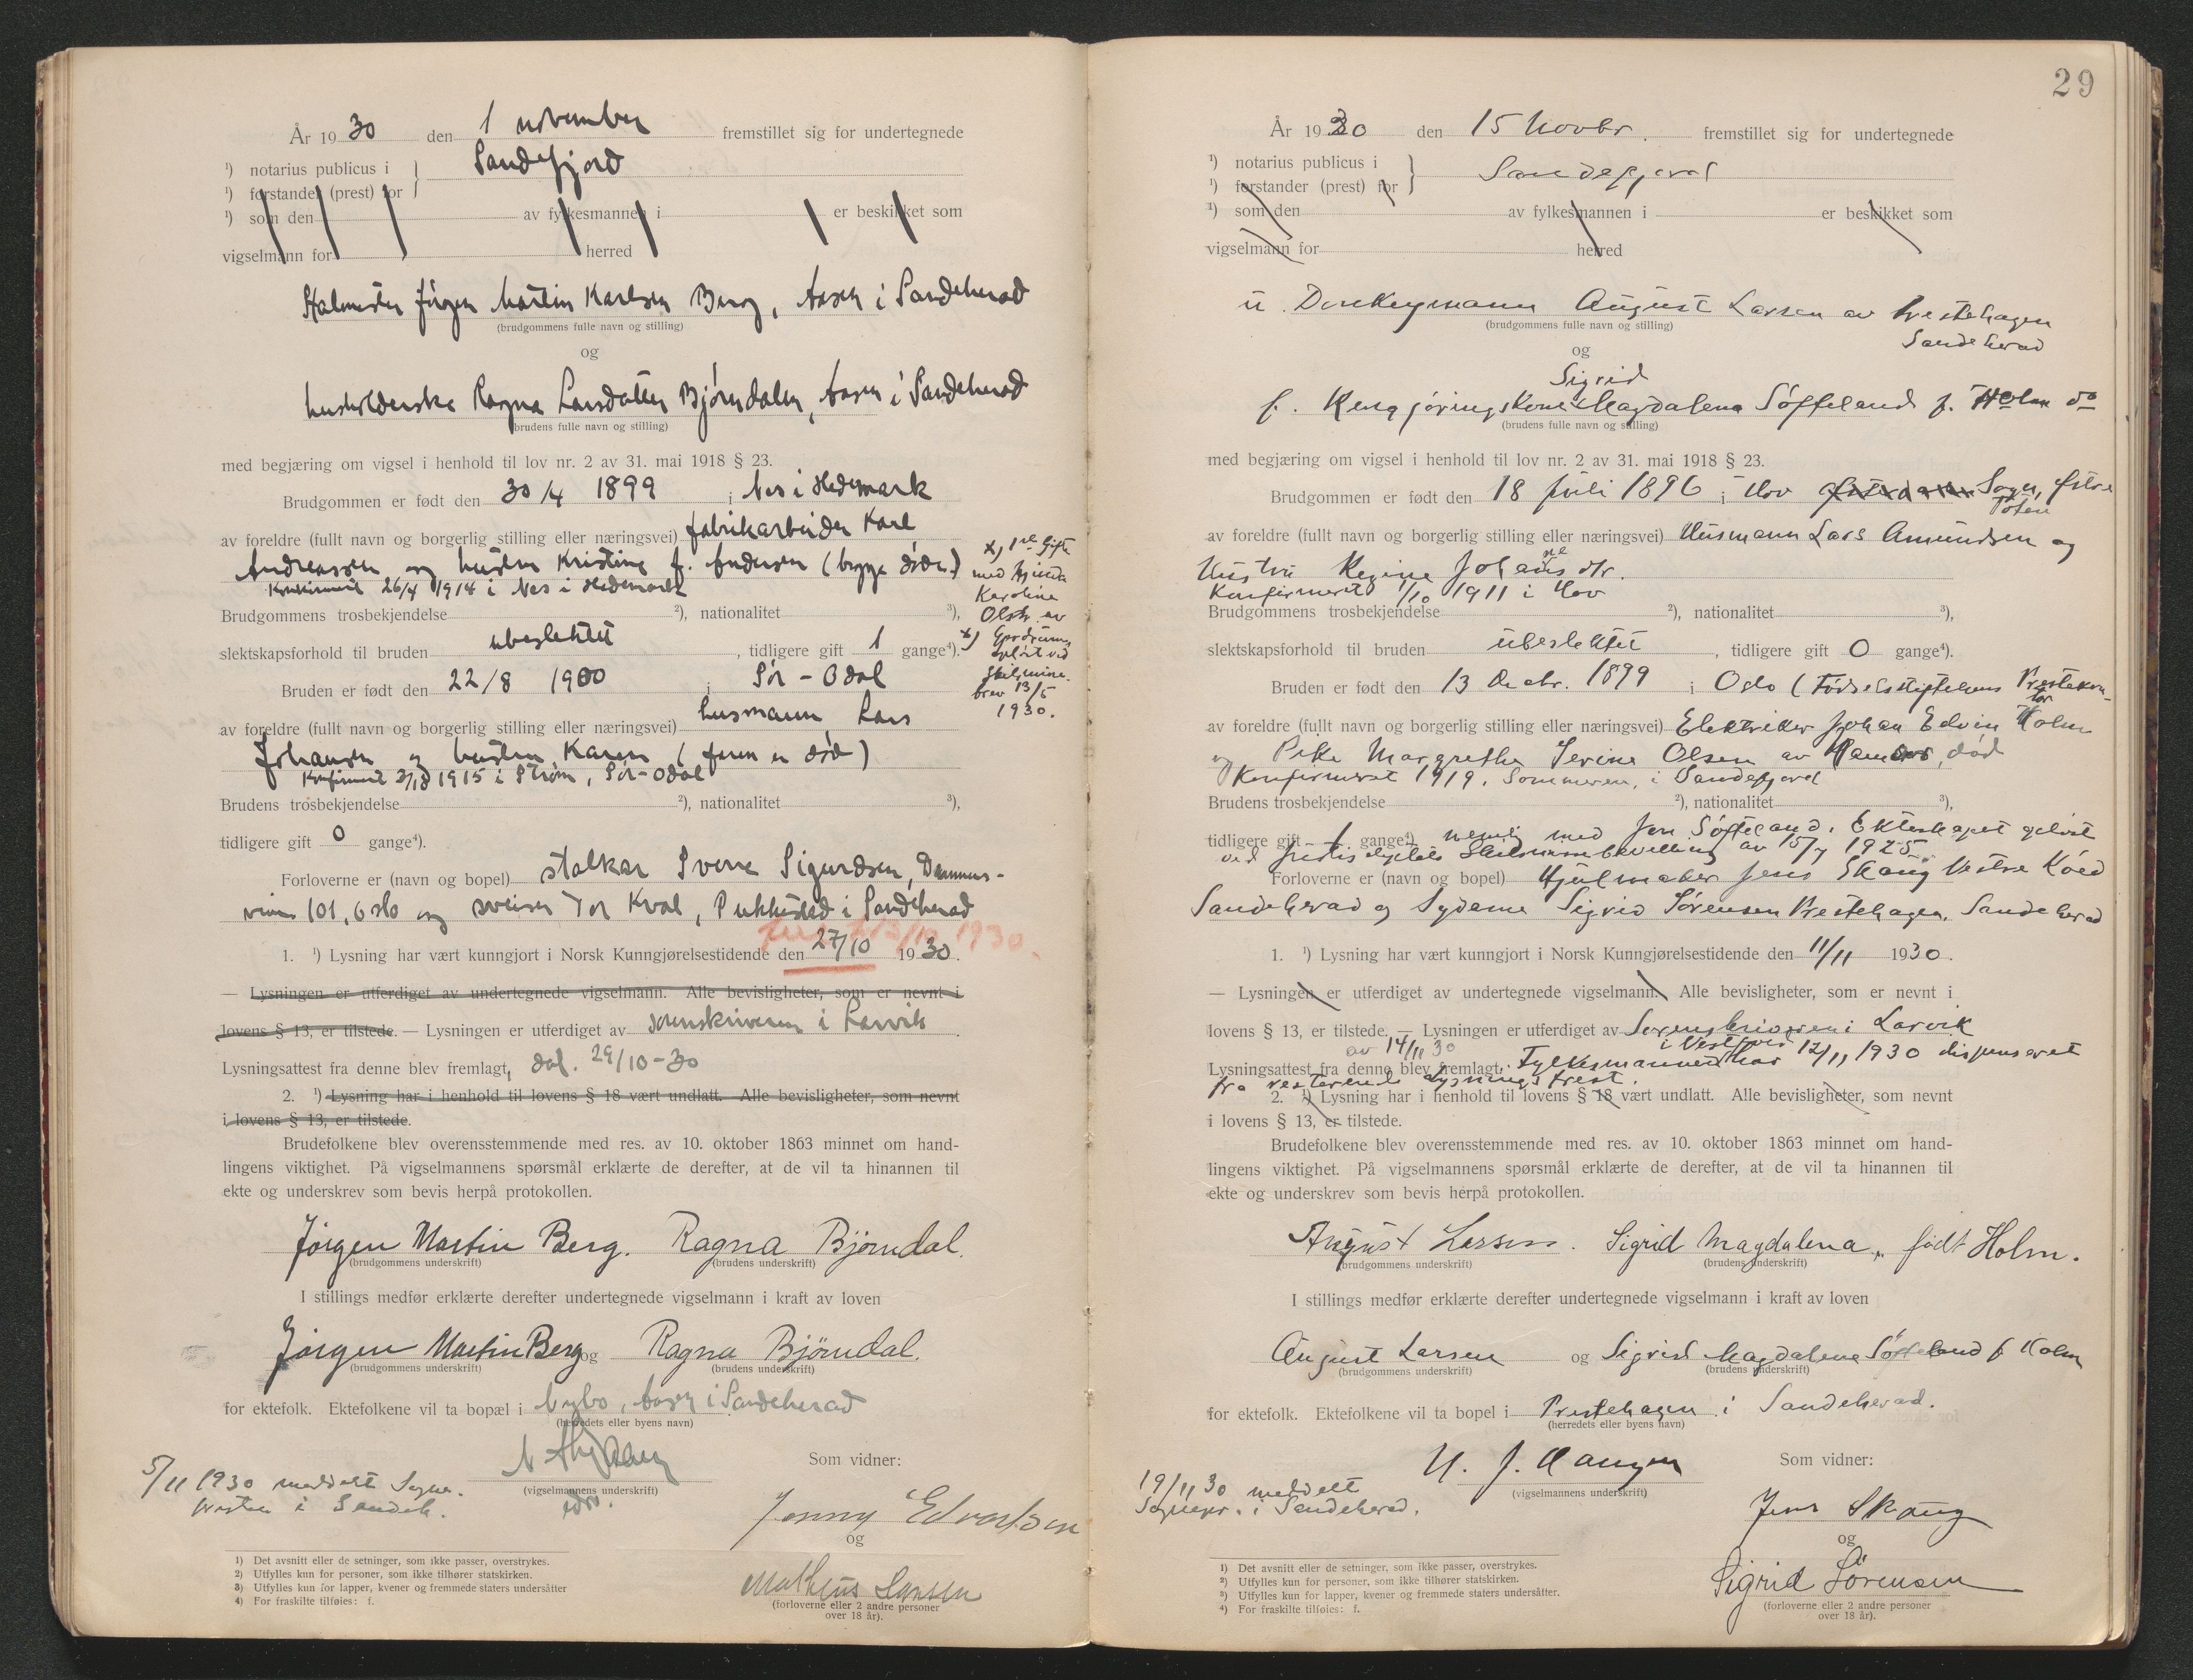 År 1930 den 1 november fremstillet sig for undertegnede
¹) notarius publicus i } Sandefjord
¹) forstander (prest) for
¹) som den av fylkesmannen i er beskikket som
vigselmann for herred
Jørgen Martin Karlsen Berg, Aasen i Sandeherad
(brudgommens fulle navn og stilling)
og
husholderske Ragna Larsdatter Bjørndalen, Aasen i Sandeherad
(brudens fulle navn og stilling)
med begjæring om vigsel i henhold til lov nr. 2 av 31. mai 1918 § 23.
Brudgommen er født den 30/4 1899 i Nes i Hedemark
av foreldre (fullt navn og borgerlig stilling eller næringsvei) fabrikarbeider Karl
Andreassen og hustru Kristine f. Andersen (begge døde)
Konfirmert 26/4 1914 i Nes i Hedemark
Brudgommens trosbekjendelse ²), nationalitet ³),
slektskapsforhold til bruden ubeslektet, tidligere gift 1 gange⁴). x)
x) 1ste Gift
med
Karoline
Olsdtr. av
opløst ved
Skilsmisse-
brev 13/5
1930.
Bruden er født den 22/8 1900 i Sør-Odal
av foreldre (fullt navn og borgerlig stilling eller næringsvei) husmann Lars
Johansen og hustru Karen (faren er død)
Konfirmert 3/10 1915 i Strøm, Sør-Odal
Brudens trosbekjendelse ²), nationalitet ³),
tidligere gift 0 gange⁴).
Forloverne er (navn og bopel) stalkar Sverre Sigurdsen, Dammens-
veien 101, Oslo og sveiser Tor Kval, Pukkestad i Sandeherad
13/10 1930.
1. ¹) Lysning har vært kunngjort i Norsk Kunngjørelsestidende den 27/10 1930.
— Lysningen er utferdiget av undertegnede vigselmann. Alle bevisligheter, som er nevnt i
lovens § 13, er tilstede. — Lysningen er utferdiget av sorenskriveren i Larvik
Lysningsattest fra denne blev fremlagt, dat. 29/10-30
2. ¹) Lysning har i henhold til lovens § 18 vært undlatt. Alle bevisligheter, som nevnt
i lovens § 13, er tilstede.
Brudefolkene blev overensstemmende med res. av 10. oktober 1863 minnet om hand-
lingens viktighet. På vigselmannens spørsmål erklærte de derefter, at de vil ta hinannen til
ekte og underskrev som bevis herpå protokollen.
Jørgen Martin Berg. Ragna Bjørndal.
(brudgommens underskrift) (brudens underskrift)
I stillings medfør erklærte derefter undertegnede vigselmann i kraft av loven
Jørgen Martin Berg og Ragna Bjørndal.
(brudgommens underskrift) (brudens underskrift)
for ektefolk. Ektefolkene vil ta bopæl i Nybo, Aasen i Sandeherad
(herredets eller byens navn)
5/11 1930 meddelt Sogne-
presten i Sandeh.
(vigselmannens underskrift)
Som vidner:
Jenny Edvardsen
og
Matheus Larsen
(forloverne eller 2 andre personer
over 18 år).
1) Det avsnitt eller de setninger, som ikke passer, overstrykes.
2) Utfylles kun for personer, som ikke tilhører statskirken.
3) Utfylles kun for lapper, kvener og fremmede staters undersåtter
4) For fraskilte tilføies: f.
29
År 1930 den 15 Novbr. fremstillet sig for undertegnede
¹) notarius publicus i } Sandefjord
¹) forstander (prest) for
¹) som den av fylkesmannen i er beskikket som
vigselmann for herred
u. Donkeymann August Larsen av Prestehagen
Sandeherad
(brudgommens fulle navn og stilling)
og
Sigrid
f. Rengjøringskone Magdalena Søffeland f. Holm do
(brudens fulle navn og stilling)
med begjæring om vigsel i henhold til lov nr. 2 av 31. mai 1918 § 23.
Brudgommen er født den 18 juli 1896 i Hov Sogn, Østre
Toten
av foreldre (fullt navn og borgerlig stilling eller næringsvei) Husmann Lars Amundsen og
Hustru Regine Johansdtr.
Konfirmeret 1/10 1911 i Hov
Brudgommens trosbekjendelse ²), nationalitet ³),
slektskapsforhold til bruden ubeslektet, tidligere gift 0 gange⁴).
Bruden er født den 13 Decbr. 1899 i Oslo (Fødselsstiftelsens Prestekon-
tor
av foreldre (fullt navn og borgerlig stilling eller næringsvei) Elektriker Johan Edvin Holm
og Pike Margrethe Severine Olsen av, død
Konfirmeret 1919. Sommeren, i Sandefjord
Brudens trosbekjendelse ²), nationalitet ³),
tidligere gift 1 gange⁴). nemlig med Jon Søffeland. Ekteskapet opløst
ved Justisdeptets Skilsmissebevilling av 15/7 1925.
Forloverne er (navn og bopel) Hjulmaker Jens Skaug Vestre Kóed
Sandeherad og Syderne Sigrid Sørensen Prestehagen, Sandeherad
1. ¹) Lysning har vært kunngjort i Norsk Kunngjørelsestidende den 11/11 1930.
— Lysningen er utferdiget av undertegnede vigselmann. Alle bevisligheter, som er nevnt i
lovens § 13, er tilstede. — Lysningen er utferdiget av Sorenskriveren i Larvik
av 14/11 30
Lysningsattest fra denne blev fremlagt. Fylkesmannen i Vestfold har 12/11 1930 dispenseret
fra resterende Lysningsfrest.
2. ¹) Lysning har i henhold til lovens § 18 vært undlatt. Alle bevisligheter, som nevnt
i lovens § 13, er tilstede.
Brudefolkene blev overensstemmende med res. av 10. oktober 1863 minnet om hand-
lingens viktighet. På vigselmannens spørsmål erklærte de derefter, at de vil ta hinannen til
ekte og underskrev som bevis herpå protokollen.
August Larsen. Sigrid Magdalena, født Holm.
(brudgommens underskrift) (brudens underskrift)
I stillings medfør erklærte derefter undertegnede vigselmann i kraft av loven
August Larsen og Sigrid Magdalena Søffeland f Holm
(brudgommens underskrift) (brudens underskrift)
for ektefolk. Ektefolkene vil ta bopel i Prestehagen i Sandeherad.
(herredets eller byens navn)
19/11 30 meddelt
Sognepr. i Sandeherad.
(vigselmannens underskrift)
Som vidner:
Jens Skaug
og
Sigrid Sørensen
(forloverne eller 2 andre personer
over 18 år).
1) Det avsnitt eller de setninger, som ikke passer, overstrykes.
2) Utfylles kun for personer, som ikke tilhører statskirken.
3) Utfylles kun for lapper, kvener og fremmede staters undersåtter.
4) For fraskilte tilføies: f.